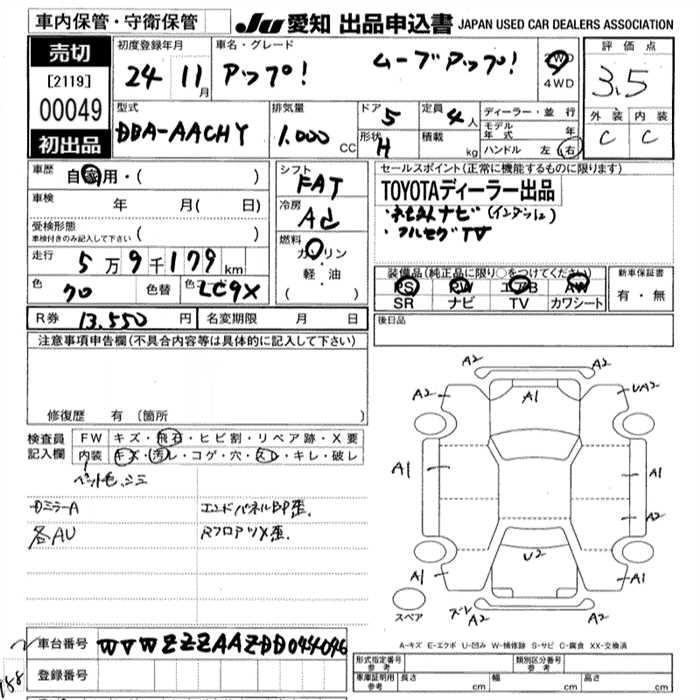 車内保管・守衛保管
JU 愛知 出品申込書 JAPAN USED CAR DEALERS ASSOCIATION
売切
[2119]
00049
初出品
初度登録年月
24 11月
車名・グレード
アップ! ムーブアップ!
2WD
4WD
評価点
3.5
外装 内装
C C
型式
DBA-AACHY
排気量
1.000 CC
ドア 5
形状 H
定員 4人
積載 kg
ディーラー・並行
モデル年式 年
ハンドル 左 右
車歴
自家用・( )
車検 年 月( 日)
受検形態
車検付きのみ記入して下さい ( )
走行 5万9千179km
色 70 色替 色 LC9X
シフト
FAT
冷房
燃料
ガソリン
・
軽・油
( )
セールスポイント(正常に機能するものに限ります)
TOYOTAディーラー出品
・ナビ(インダッシュ)
・フルセグTV
装備品(純正品に限り○をつけてください)
PS PW エアB AW
SR ナビ TV カワシート
新車保証書
有・無
R券 13.550円 名変期限 月 日
後日品
注意事項申告欄(不具合内容等は具体的に記入して下さい)
修復歴 有(箇所 )
検査員記入欄
FW キズ・飛石・ヒビ割・リペア跡・X要
内装 キズ・汚レ・コゲ・穴・スレ・キレ・破レ
ペット毛、シミ
エンドパネルBP歪.
各AU
A2
A2
A1
UA2
A1
A1
A2
A1
U2
A1
ズレ
A2
A2
スペア
A-キズ E-エクボ U-凹み W-補修跡 S-サビ C-腐食 XX-交換済
車台番号 WVWZZZAAZDD044046
登録番号
形式指定番号 参考
類別区分番号 参考
車庫証明用 参考
長さ cm
幅 cm
高さ cm